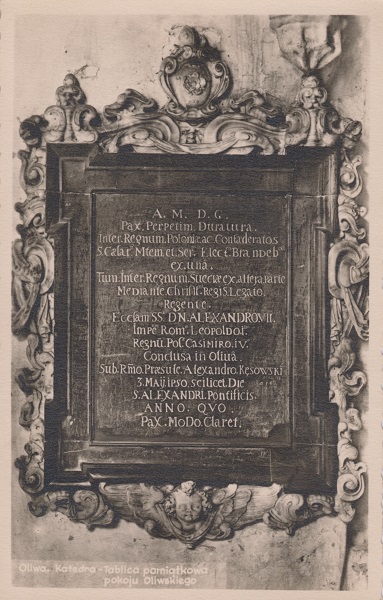 A. M. D. G.
Pax. Perpetim. Duratura.
Inter. Regnum. Poloniæ ac Confæderatos
S. Cæsar. Mtem. et. Ser. Elect. Brandeb
ex. una.
Tum. Inter. Regnum. Sueciæ ex. altera parte
Mediante. Christ. Regis. Legato.
Regente.
Ecclam SS. D.N. ALEXANDRO VII.
Imp. Rom. Leopoldo I.
Regnu. Pol. CASIMIRO. IV.
Conclusa in Oliva.
Sub. Rmo. Præsule. Alexandro. Kęsowski
3. Maij. Ipso. scilicet. Die
S. ALEXANDRI. Pontificis.
ANNO. QVO.
PaX. MoDo. CLaret.
Oliwa. Katedra - Tablica pamiątkowa
pokoju Oliwskiego